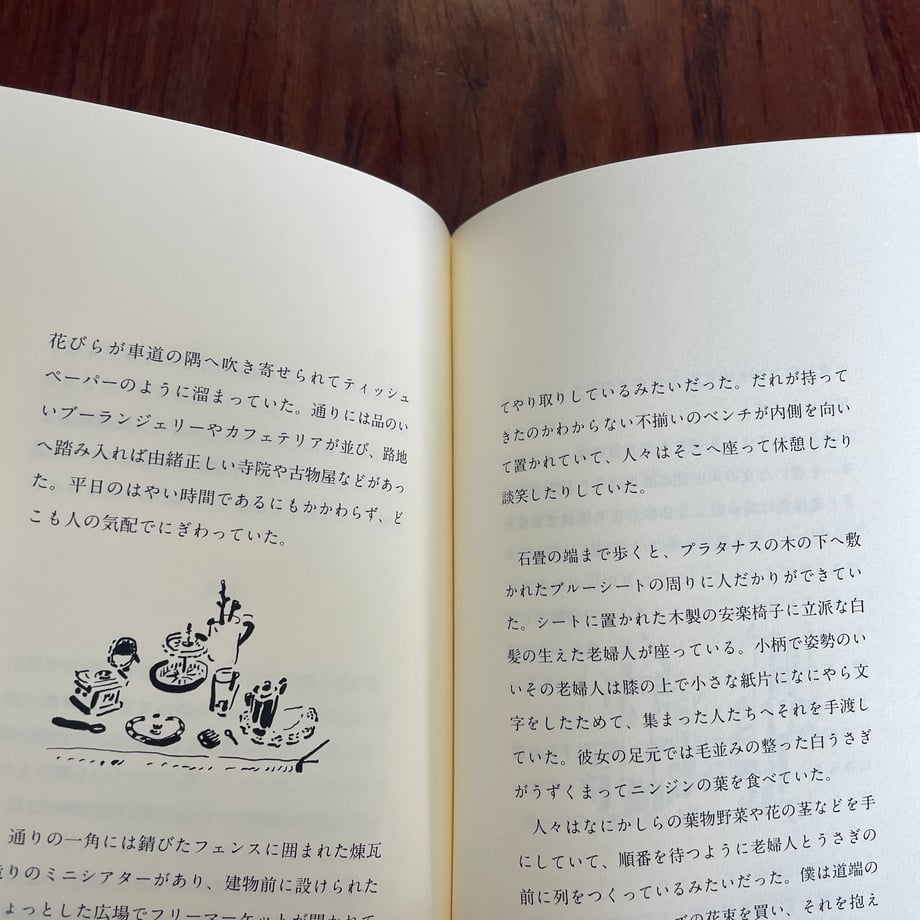 花びらが車道の隅へ吹き寄せられてティッシュ
ペーパーのように溜まっていた。通りには品のい
いブーランジェリーやカフェテリアが並び、路地
へ踏み入れば由緒正しい寺院や古物屋などがあっ
た。平日のはやい時間であるにもかかわらず、ど
こも人の気配でにぎわっていた。
通りの一角には錆びたフェンスに囲まれた煉瓦
造りのミニシアターがあり、建物前に設けられた
ちょっとした広場でフリーマーケットが開かれて
てやり取りしているみたいだった。だれが持って
きたのかわからない不揃いのベンチが内側を向い
て置かれていて、人々はそこへ座って休憩したり
談笑したりしていた。
石畳の端まで歩くと、プラタナスの木の下へ敷
かれたブルーシートの周りに人だかりができてい
た。シートに置かれた木製の安楽椅子に立派な白
髪の生えた老婦人が座っている。小柄で姿勢のい
いその老婦人は膝の上で小さな紙片になにやら文
字をしたためて、集まった人たちへそれを手渡し
ていた。彼女の足元では毛並みの整った白うさぎ
がうずくまってニンジンの葉を食べていた。
人々はなにかしらの葉物野菜や花の茎などを手
にしていて、順番を待つように老婦人とうさぎの
前に列をつくっているみたいだった。僕は道端の
ズの花束を買い、それを抱え